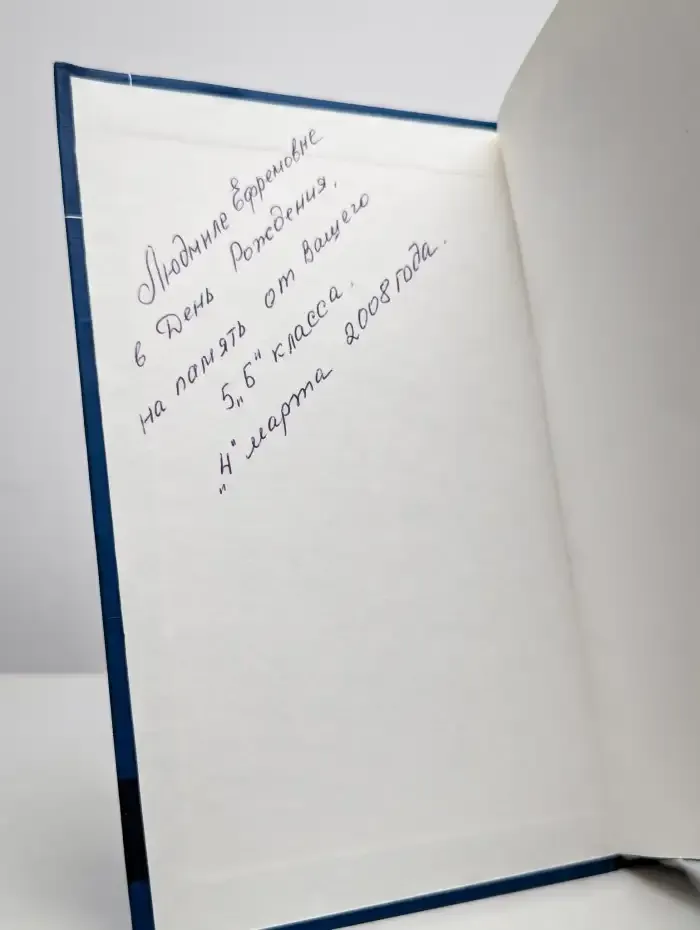 Людмиле Ефремовне
в День Рождения,
на память от Вашего
5 „Б" класса.
„4" марта 2008 года.